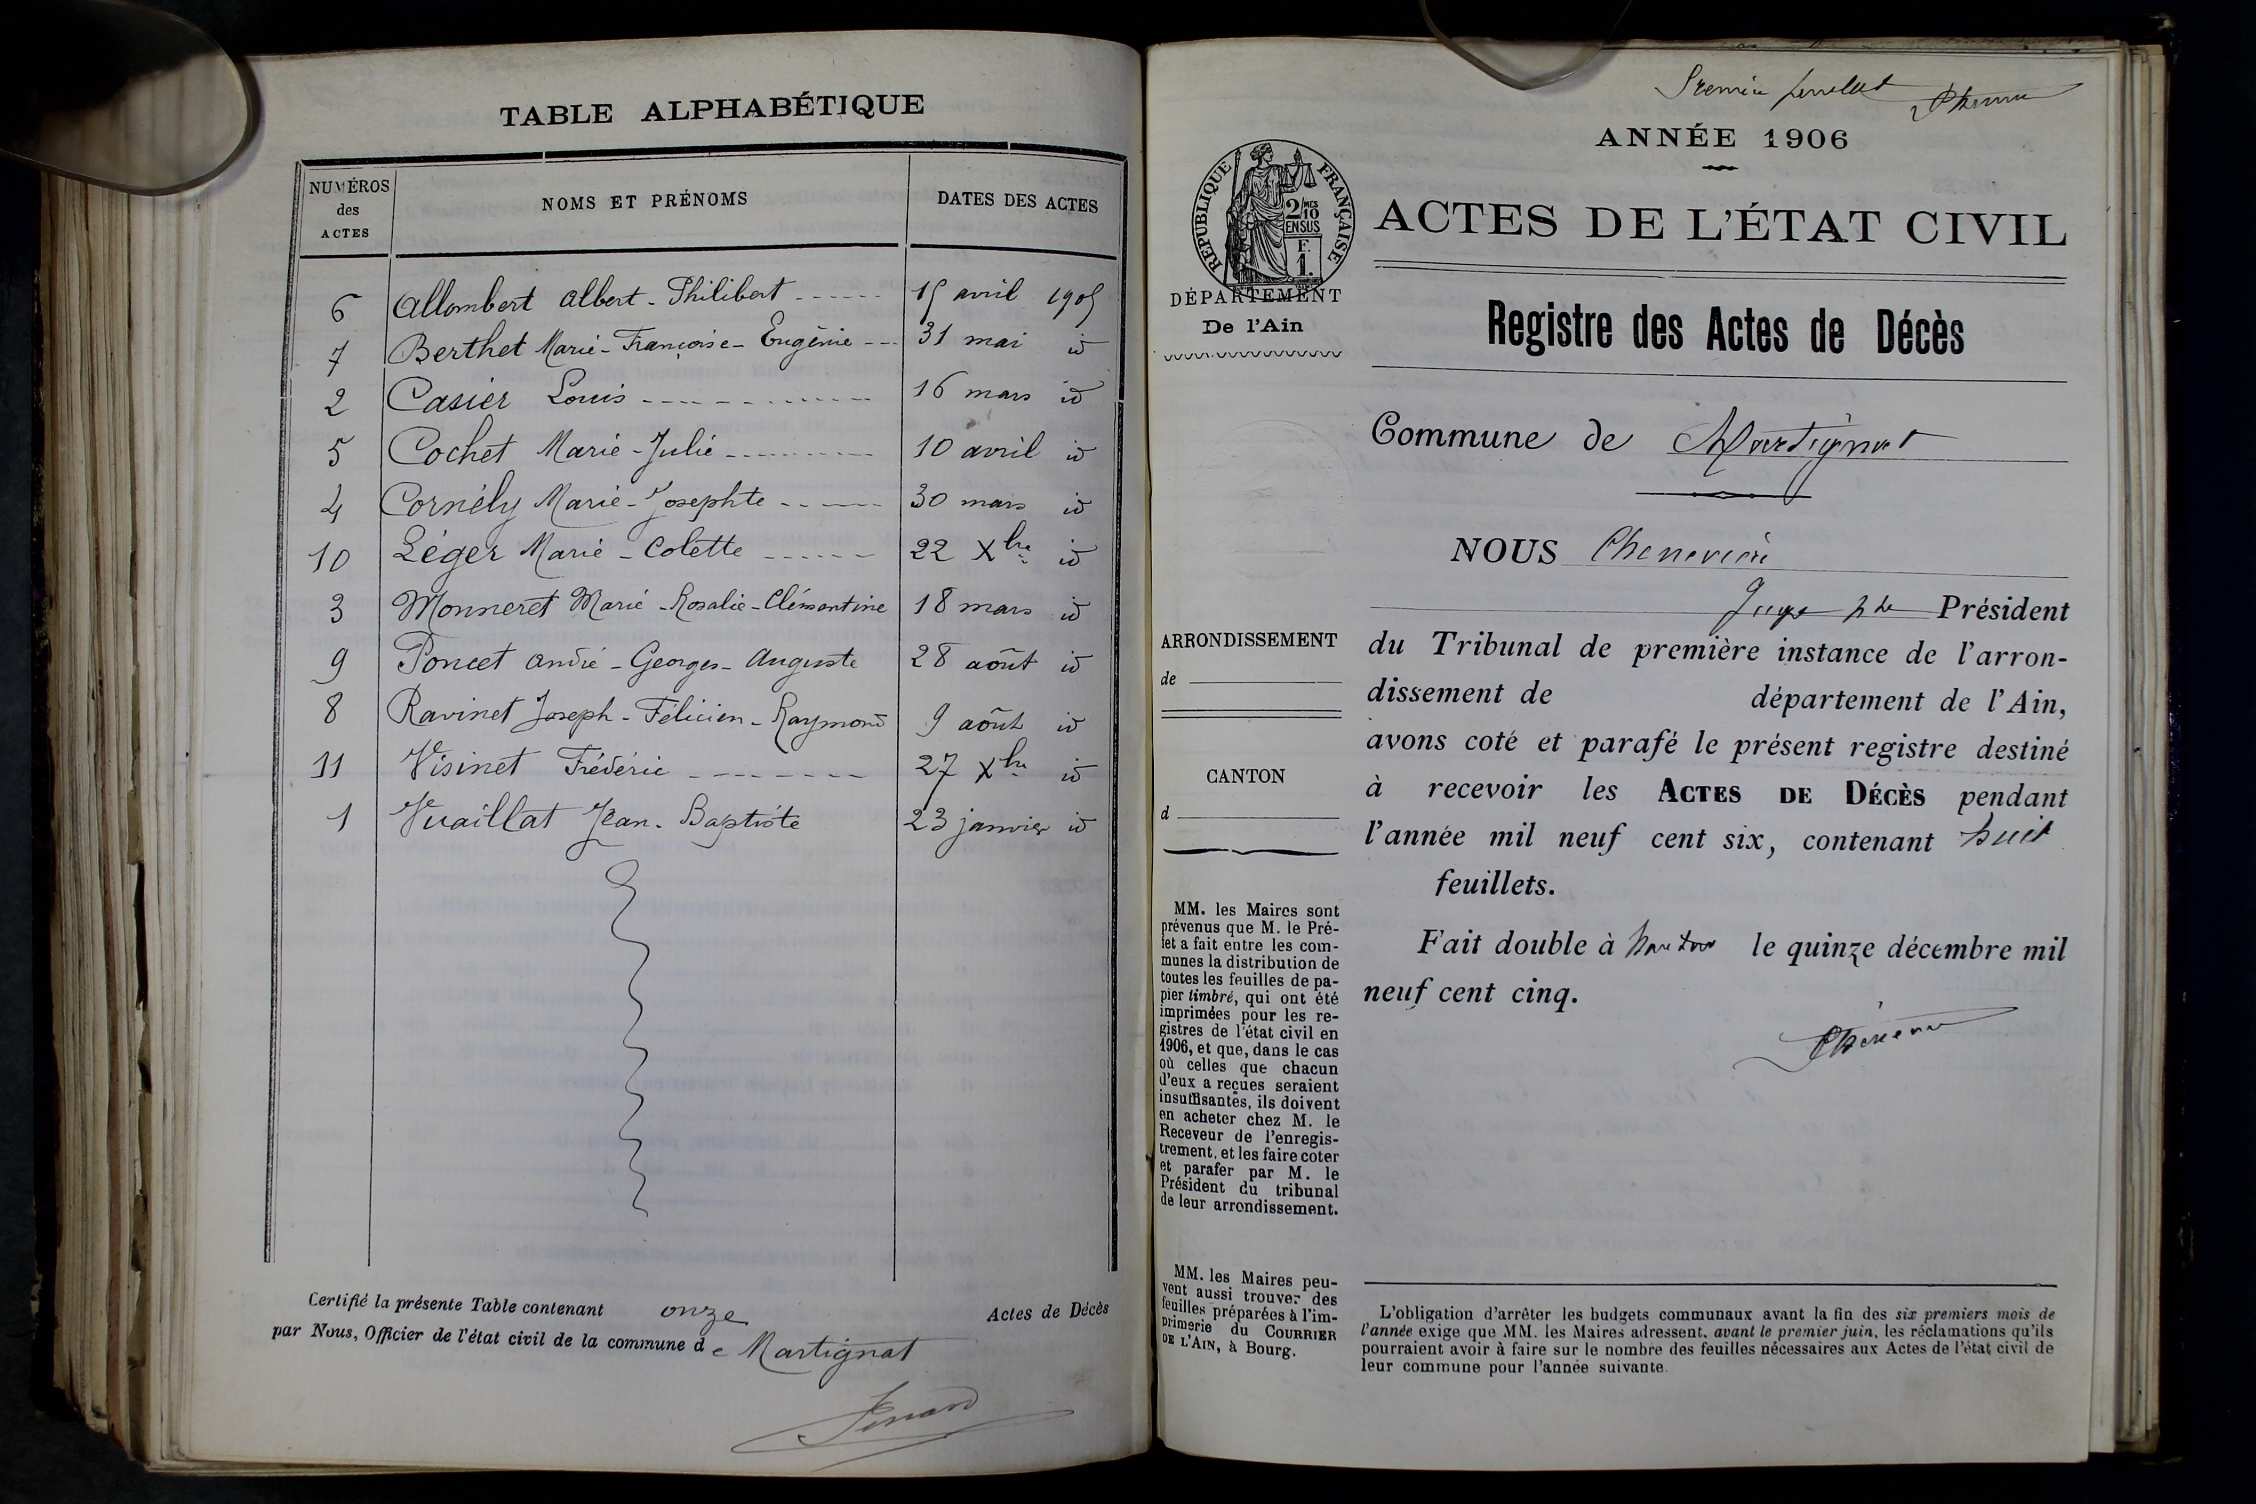 TABLE ALPHABÉTIQUE
NUMÉROS des ACTES NOMS ET PRÉNOMS DATES DES ACTES
6 Allombert Albert-Philibert 15 avril 1905
7 Berthet Marie-Françoise-Eugénie 31 mai id
2 Casier Louis 16 mars id
5 Cochet Marie-Julie 10 avril id
4 Cornély Marie-Josephte 30 mars id
10 Léger Marie-Colette 22 Xbre id
3 Monneret Marie-Rosalie-Clémentine 18 mars id
9 Poncet André-Georges-Auguste 28 août id
8 Ravinet Joseph-Félicien-Raymond 9 août id
11 Visinet Frédéric 27 Xbre id
1 Vuaillat Jean-Baptiste 23 janvier id
Certifié la présente Table contenant onze Actes de Décès
par Nous, Officier de l'état civil de la commune de Martignat
ANNÉE 1906
RÉPUBLIQUE FRANÇAISE
2/10 MES
EN SUS
F.
1.
DÉPARTEMENT
De l'Ain
ACTES DE L'ÉTAT CIVIL
Registre des Actes de Décès
Commune de Martignat
NOUS Chenevière
Juge Président
du Tribunal de première instance de l'arron-
dissement de département de l'Ain,
avons coté et parafé le présent registre destiné
à recevoir les ACTES DE DÉCÈS pendant
l'année mil neuf cent six, contenant huit
feuillets.
Fait double à Nantua le quinze décembre mil
neuf cent cinq.
ARRONDISSEMENT
de
CANTON
d
MM. les Maires sont
prévenus que M. le Pré-
fet a fait entre les com-
munes la distribution de
toutes les feuilles de pa-
pier timbré, qui ont été
imprimées pour les re-
gistres de l'état civil en
1906, et que, dans le cas
où celles que chacun
d'eux a reçues seraient
insuffisantes, ils doivent
en acheter chez M. le
Receveur de l'enregis-
trement, et les faire coter
et parafer par M. le
Président du tribunal
de leur arrondissement.
MM. les Maires peu-
vent aussi trouver des
feuilles préparées à l'im-
primerie du COURRIER
DE L'AIN, à Bourg.
L'obligation d'arrêter les budgets communaux avant la fin des six premiers mois de
l'année exige que MM. les Maires adressent, avant le premier juin, les réclamations qu'ils
pourraient avoir à faire sur le nombre des feuilles nécessaires aux Actes de l'état civil de
leur commune pour l'année suivante.